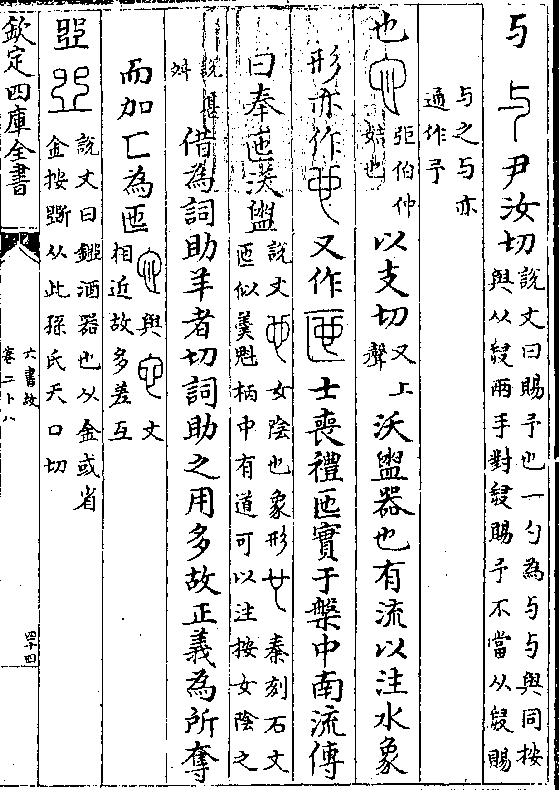 与 尹汝切 說文曰賜予也一勺為与与與同按
與从舁兩手對舁賜予不當从舁賜
与之与亦
通作予
也 張伯仲
姞也 以支切 又上
聲 沃盥器也有流以注水象
形亦作 又作 士喪禮匜實于槃中南流傳
曰奉匜沃盥 說文 女陰也象形 秦刻石文
匜似羹魁柄中有道可以注按女陰之
說 借為詞助羊者切詞助之用多故正義為所奪
而加匚為匜 與 文
相近故多差互
說文曰鎠酒器也从金或省
金按斲从此孫氏天口切
欽定四庫全書
六書故
卷二十八
四十四